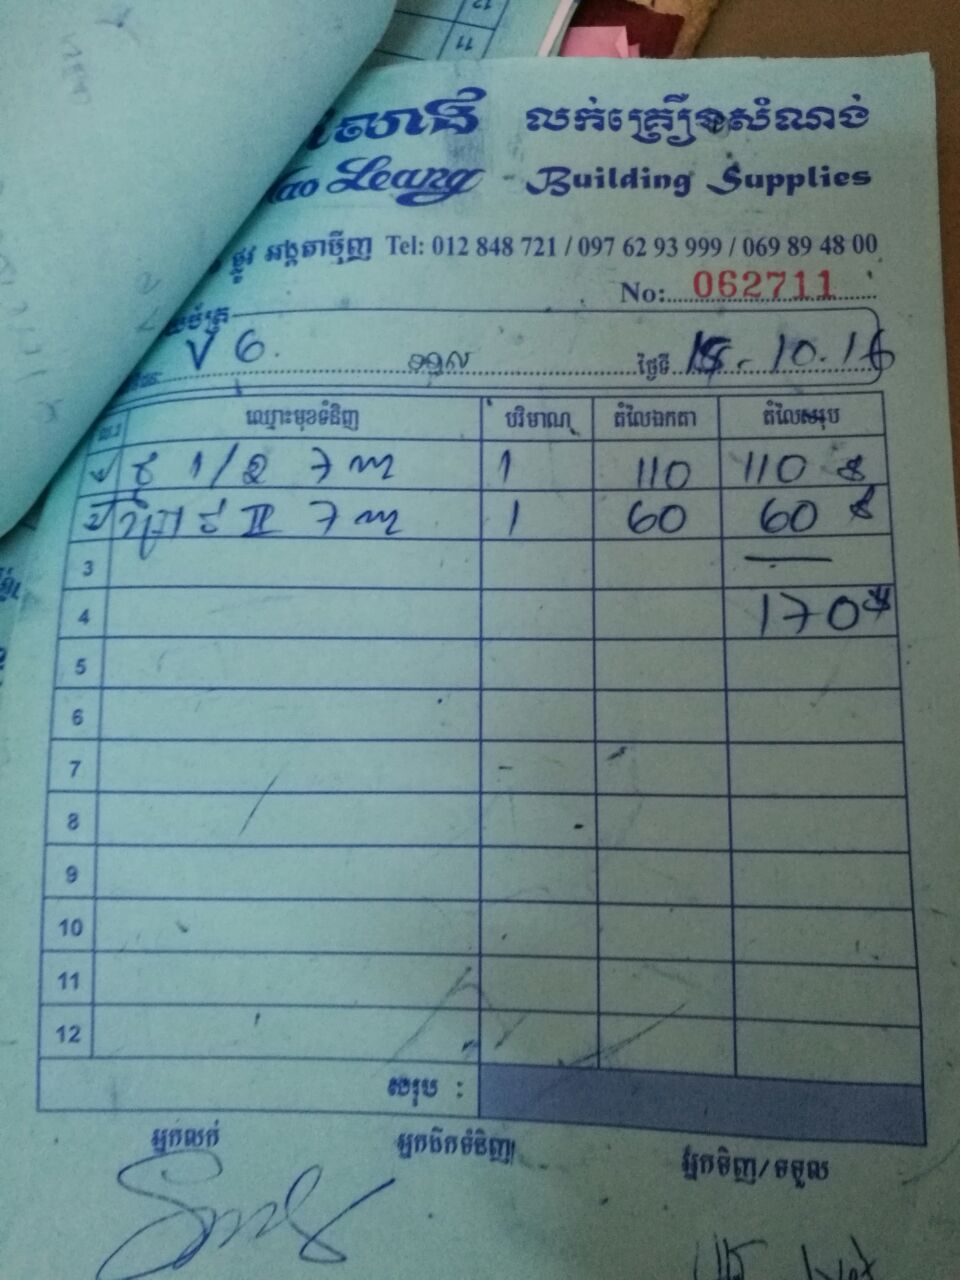 12
11
លាង លក់គ្រឿងសំណង់
Leang Building Supplies
ផ្លូវ អង្គតាម៉ិញ Tel: 012 848 721 / 097 62 93 999 / 069 89 48 00
No: 062711
V 6. ទទួល ថ្ងៃទី 18-10.16
ល.រ ឈ្មោះមុខទំនិញ បរិមាណ តំលៃឯកតា តំលៃសរុប
1 1/2 7 1 110 110 $
2 II 7 1 60 60 $
3
4 170$
5
6
7
8
9
10
11
12
សរុប :
អ្នកលក់ អ្នកដឹកទំនិញ អ្នកទិញ/ទទួល